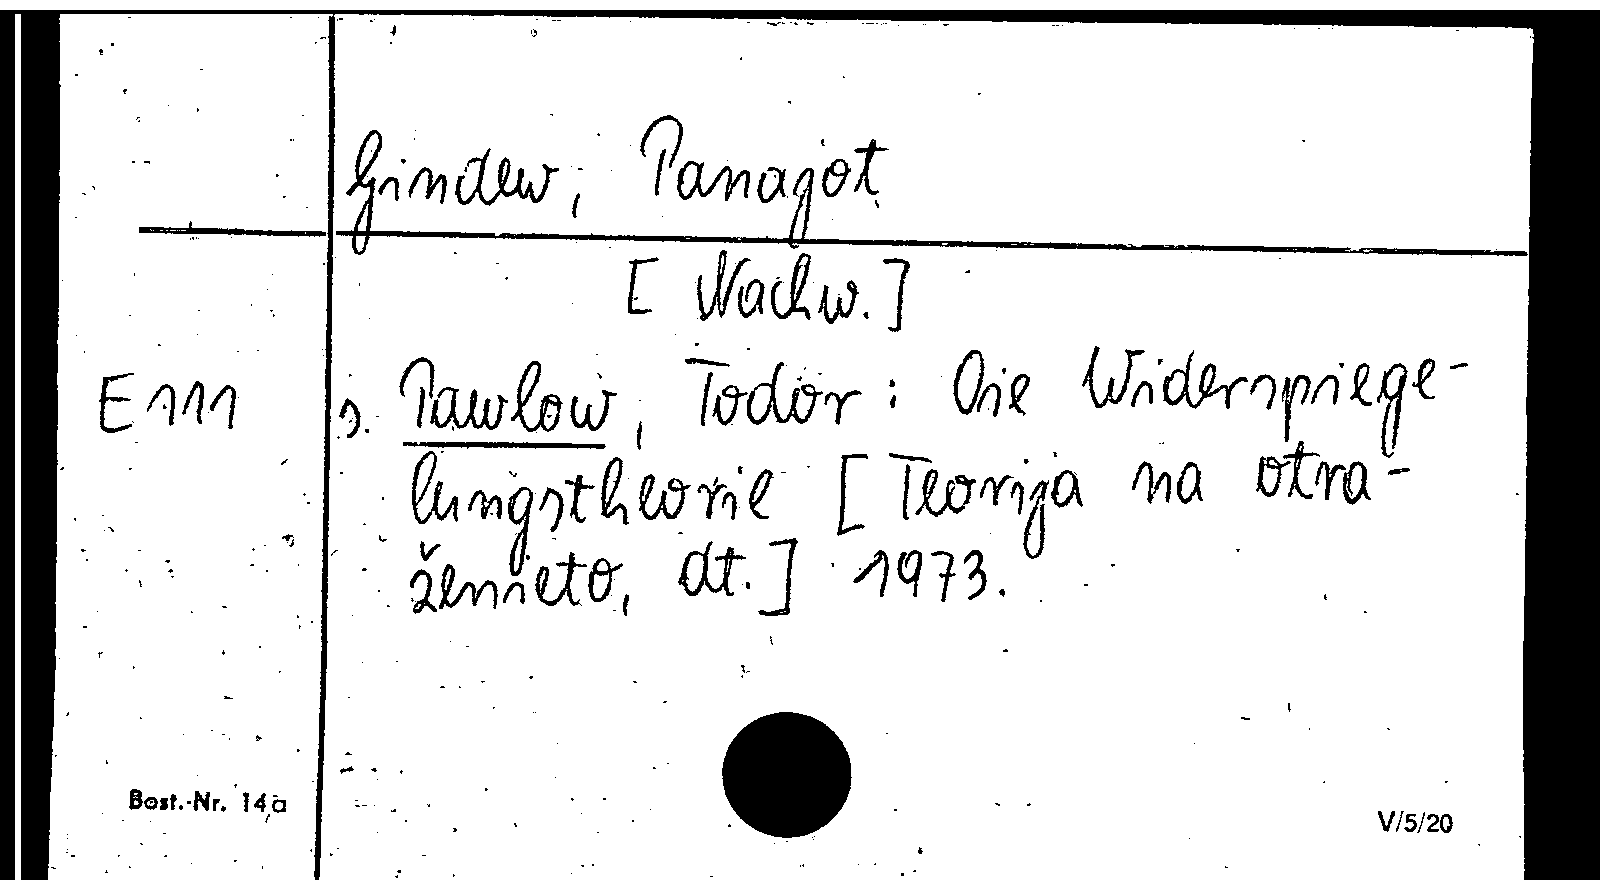 Gindew, Panajot
[Nachw.]
E 111 s. Pawlow, Todor: Die Widerspiege-
lungstheorie [Teorija na otra-
ženieto, dt.] 1973.
Best.-Nr. 14a
V/5/20